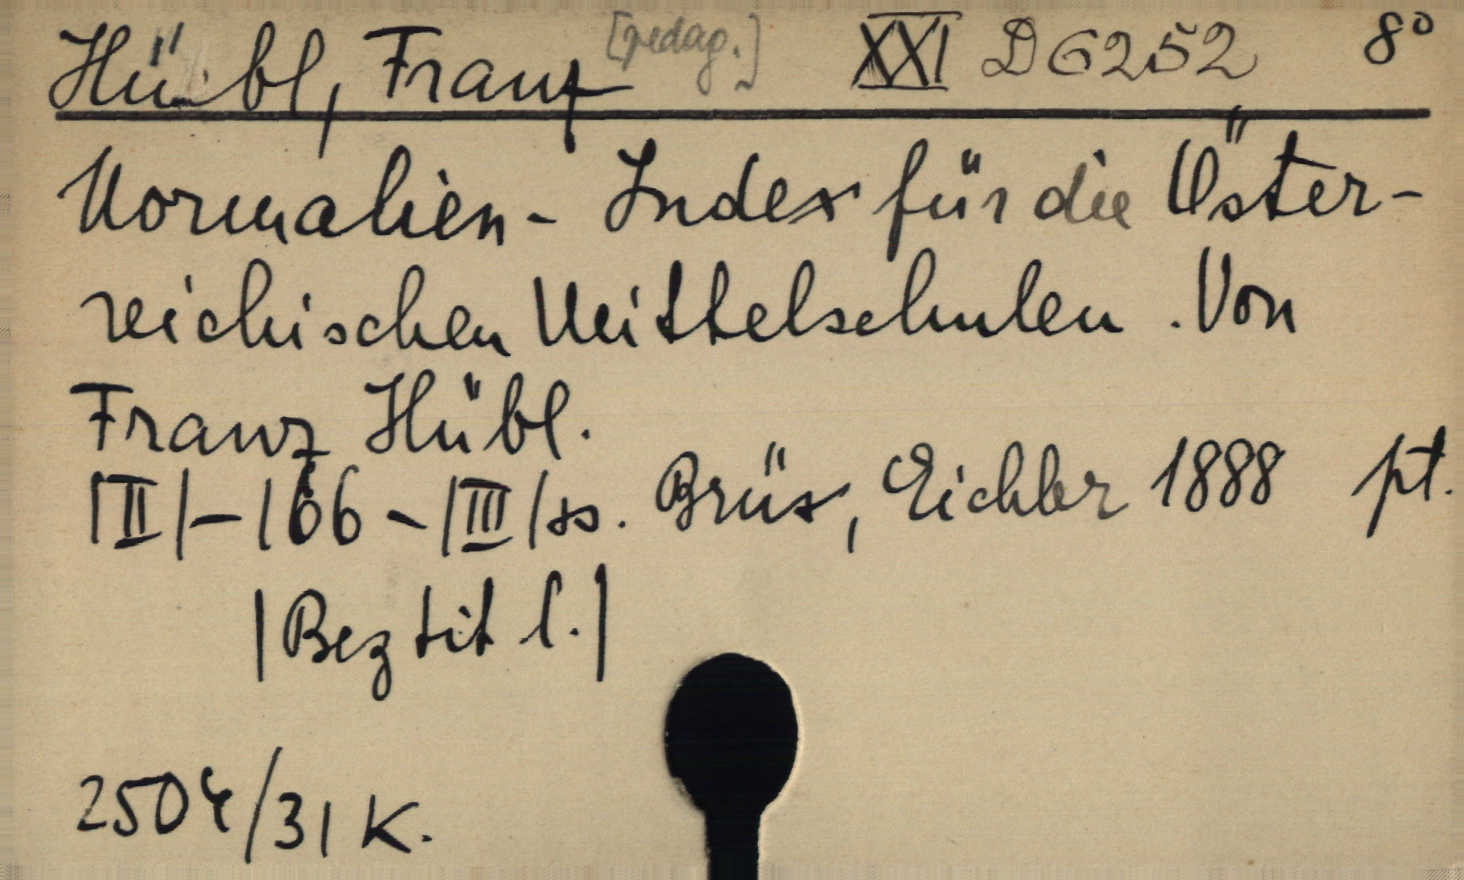 Hübl, Franz [pedag.] XXI D 6252 8°
Normalien-Index für die Öster-
reichischen Mittelschulen. Von
Franz Hübl.
|II|-166-|III|ss. Brüx, Eichler 1888 pt.
|Bez tit l.|
2504/31 K.